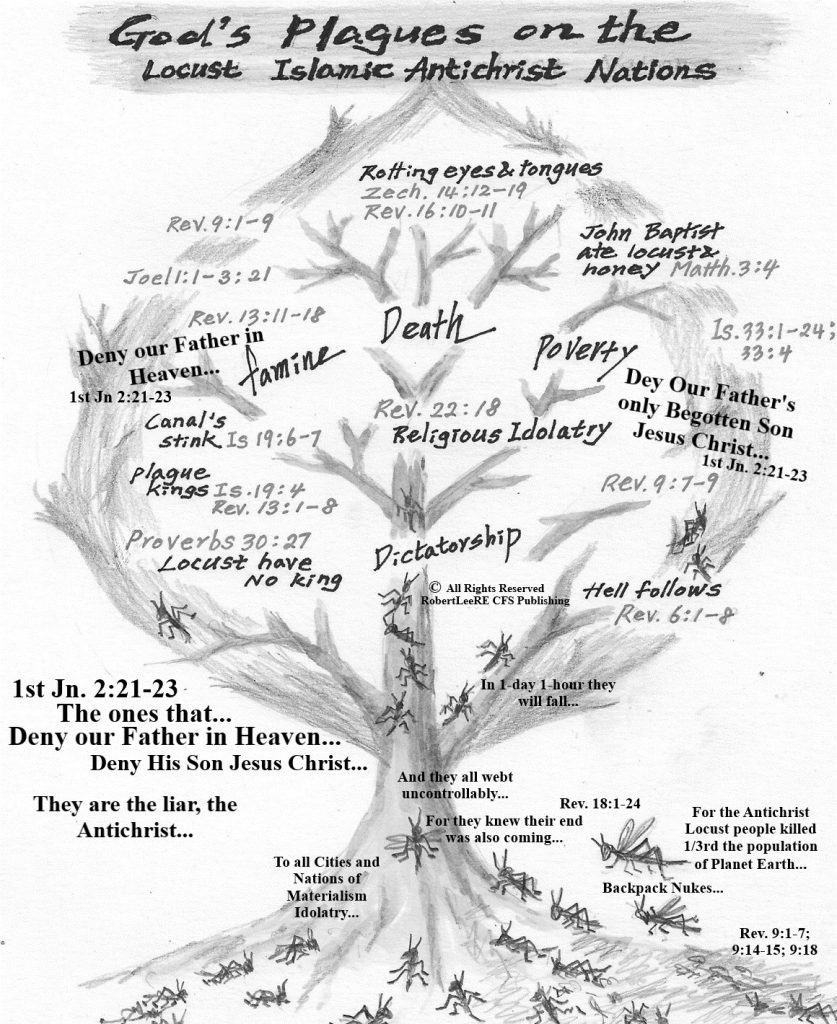 God's Plagues on the
Locust Islamic Antichrist Nations
Rotting eyes & tongues
Zech. 14:12-19
Rev. 16:10-11
Rev. 9:1-9
John Baptist
ate locust &
honey Matth. 3:4
Joel 1:1-3:21
Rev. 13:11-18
Death
Is. 33:1-24;
33:4
Deny our Father in
Heaven...
1st Jn 2:21-23
famine
Poverty
Dey Our Father's
only Begotten Son
Jesus Christ...
1st Jn. 2:21-23
Rev. 22:18
Religious Idolatry
Canal's
stink Is 19:6-7
Plague
kings Is. 19:4
Rev. 13:1-8
Rev. 9:7-9
Proverbs 30:27
Locust have
no king
Dictatorship
© All Rights Reserved
RobertLeeRE CFS Publishing
Hell follows
Rev. 6:1-8
1st Jn. 2:21-23
The ones that...
Deny our Father in Heaven...
Deny His Son Jesus Christ...
They are the liar, the
Antichrist...
In 1-day 1-hour they
will fall...
And they all webt
uncontrollably...
For they knew their end
was also coming...
Rev. 18:1-24
For the Antichrist
Locust people killed
1/3rd the population
of Planet Earth...
Backpack Nukes...
To all Cities and
Nations of
Materialism
Idolatry...
Rev. 9:1-7;
9:14-15; 9:18